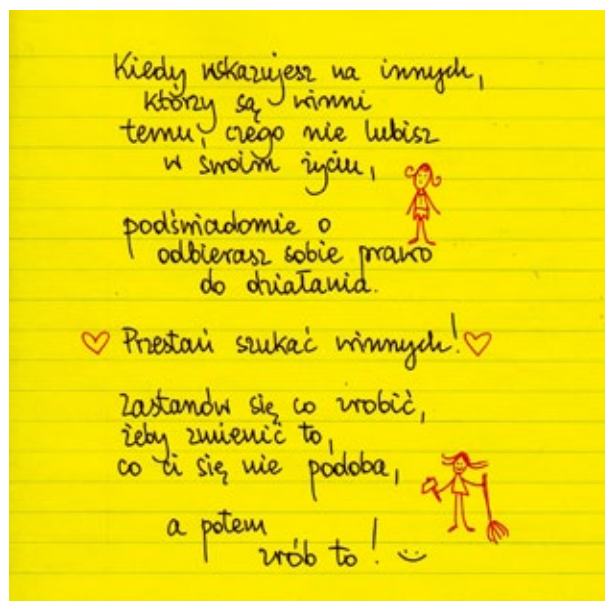 Kiedy wskazujesz na innych,
którzy są winni
temu, czego nie lubisz
w swoim życiu,
podświadomie o
odbierasz sobie prawo
do działania.
Przestań szukać winnych!
Zastanów się co zrobić,
żeby zmienić to,
co ci się nie podoba,
a potem
zrób to!